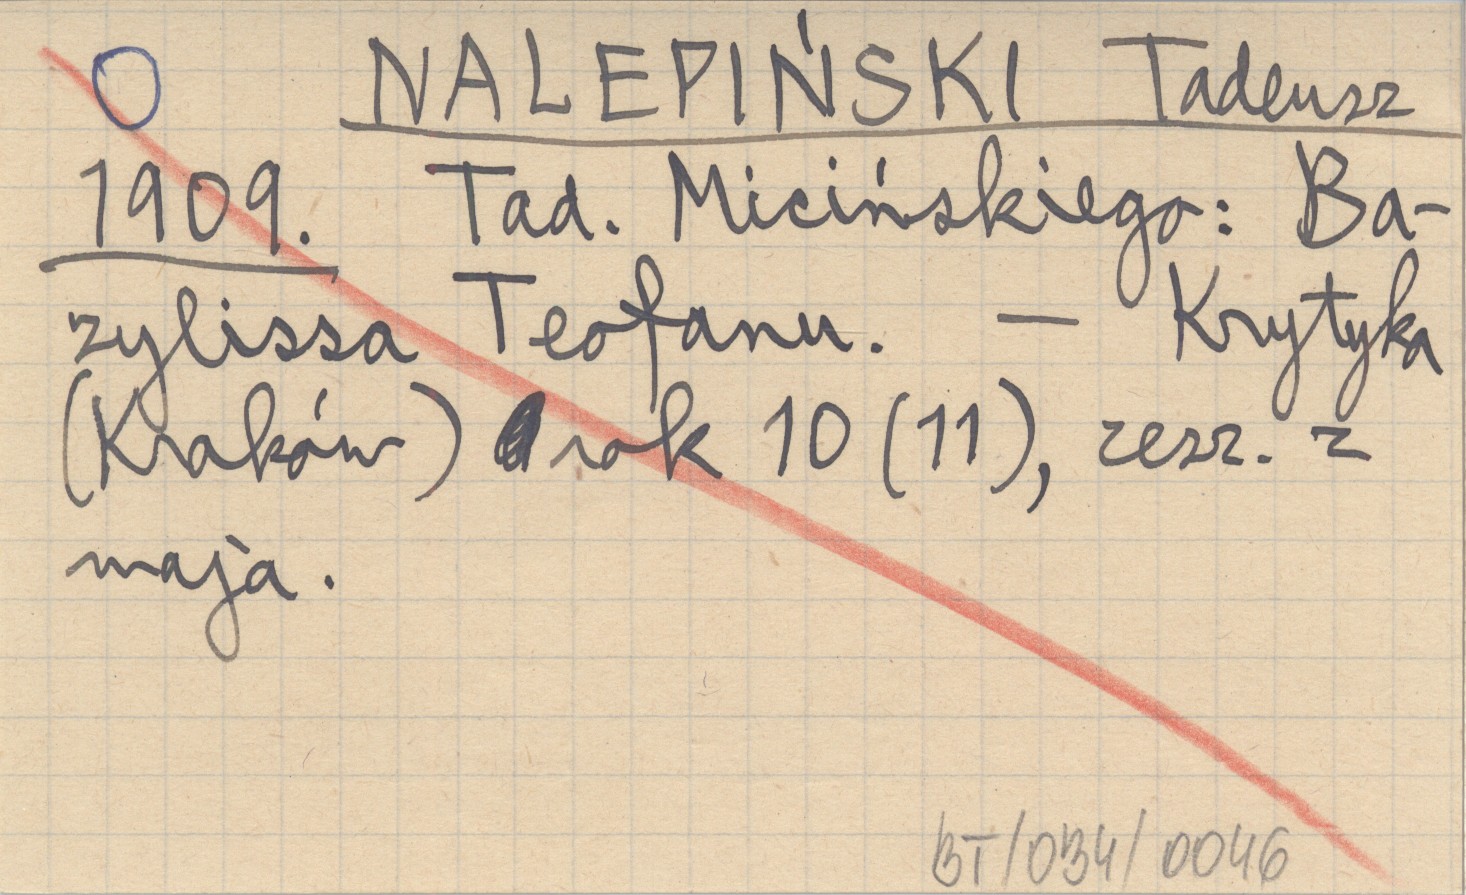 O NALEPIŃSKI Tadeusz
1909. Tad. Micińskiego: Ba-
zylissa Teofanu. — Krytyka
(Kraków) rok 10 (11), zesz. z
maja.
BT/OB4/0046